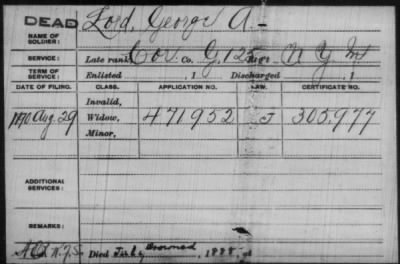 DEAD
NAME OF SOLDIER: Lord, George A.
SERVICE: Late rank Cor. Co. G, 125 Reg't N Y Inf
TERM OF SERVICE: Enlisted , 1 Discharged , 1
DATE OF FILING. CLASS. APPLICATION NO. LAW. CERTIFICATE NO.
Invalid,
1890 Aug. 29 Widow, 471,952 J 305,977
Minor,
ADDITIONAL SERVICES:
REMARKS:
Died July Drowned , 1888, at